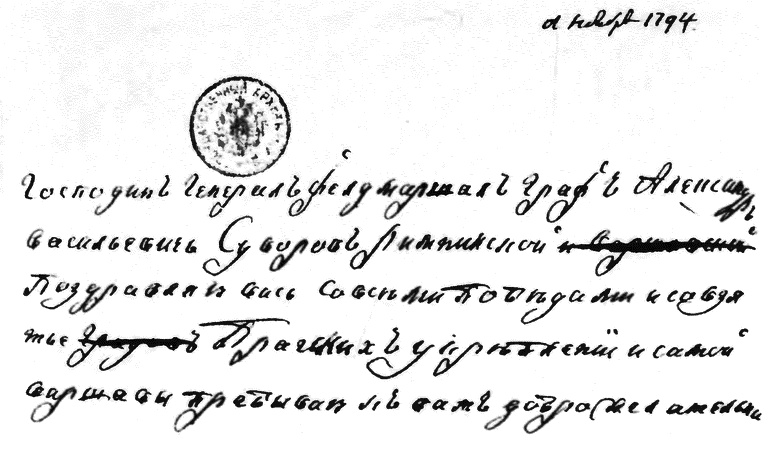 ноябр 1794
Господинъ Генералъ фелдмаршалъ Графъ Александръ
васильевичь Суворовъ Римникской
Поздравляю васъ со всеми победами и со взя
тье Прагскихъ укрѣплений и самой
варшавы пребываю къ вамъ доброжелательна